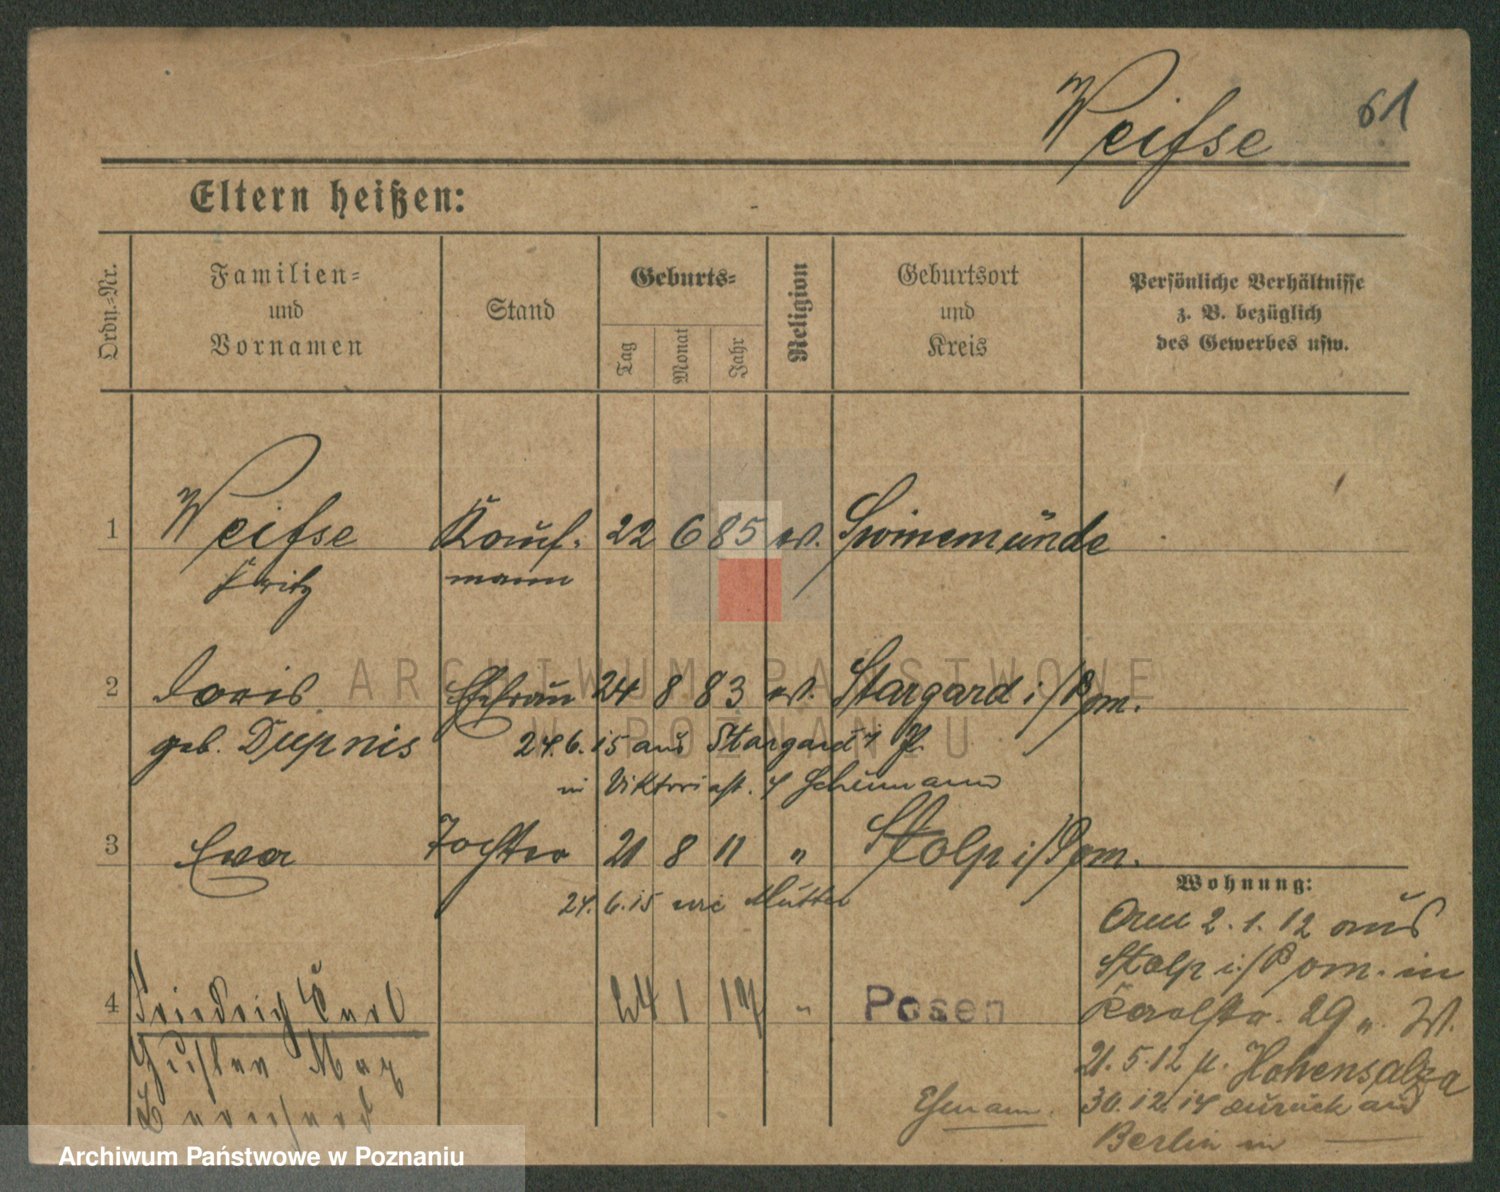 61
Weifse
Eltern heißen:
Ordn.-Nr.
Familien-
und
Vornamen
Stand
Geburts-
Tag
Monat
Jahr
Religion
Geburtsort
und
Kreis
Persönliche Verhältnisse
z. B. bezüglich
des Gewerbes usw.
1 Weifse Kauf- 22 6 85 ev. Swinemünde
Fritz mann
2 Doris Ehefrau 24 8 83 ev. Stargard i/Pom.
geb. Dupnis 24.6.15 aus Stargard i P.
in Viktoriast.
3 Eva Tochter 21 8 11 " Stolp i/Pom.
24.6.15 wie Mutter
Wohnung:
Am 2.1.12 aus
Stolp i/Pom. in
Karlstr. 29 W.
21.5.12 n. Hohensalza
30.12.14 zurück aus
Berlin in
4 Friedrich Carl 24 1 17 " Posen
Gustav Max
Bernhard
Ehemann.
ARCHIWUM PAŃSTWOWE
W POZNANIU
Archiwum Państwowe w Poznaniu